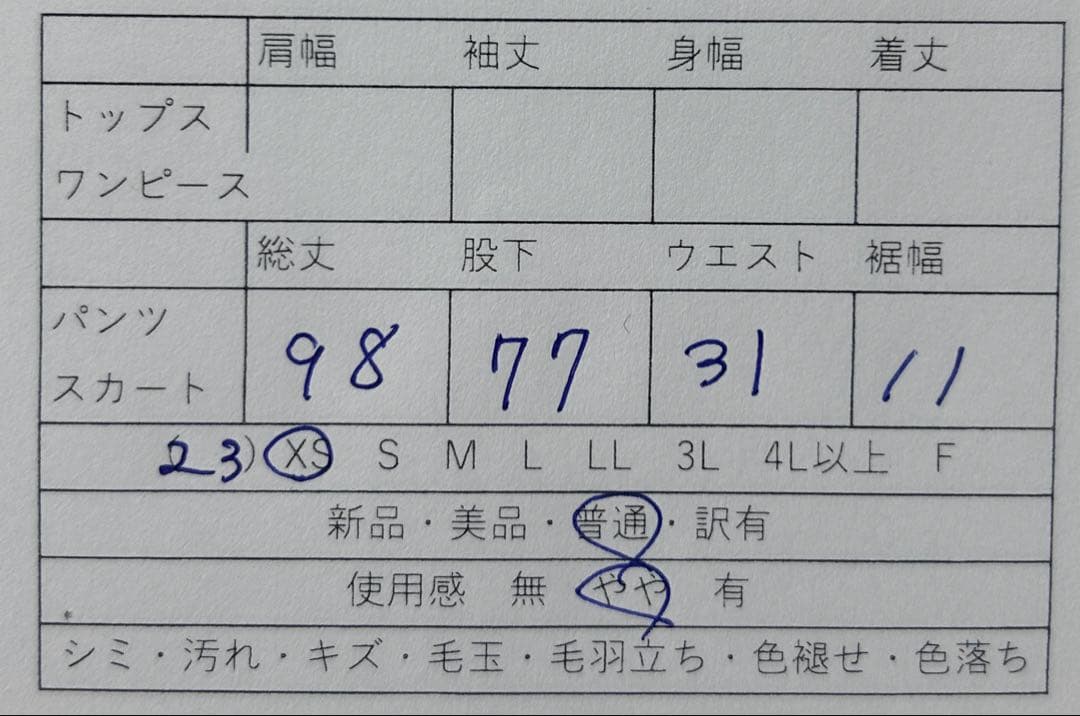 肩幅 袖丈 身幅 着丈
トップス
ワンピース
総丈 股下 ウエスト 裾幅
パンツ
スカート
98 77 31 11
23) XS S M L LL 3L 4L以上 F
新品・美品・普通・訳有
使用感 無 やや 有
シミ・汚れ・キズ・毛玉・毛羽立ち・色褪せ・色落ち